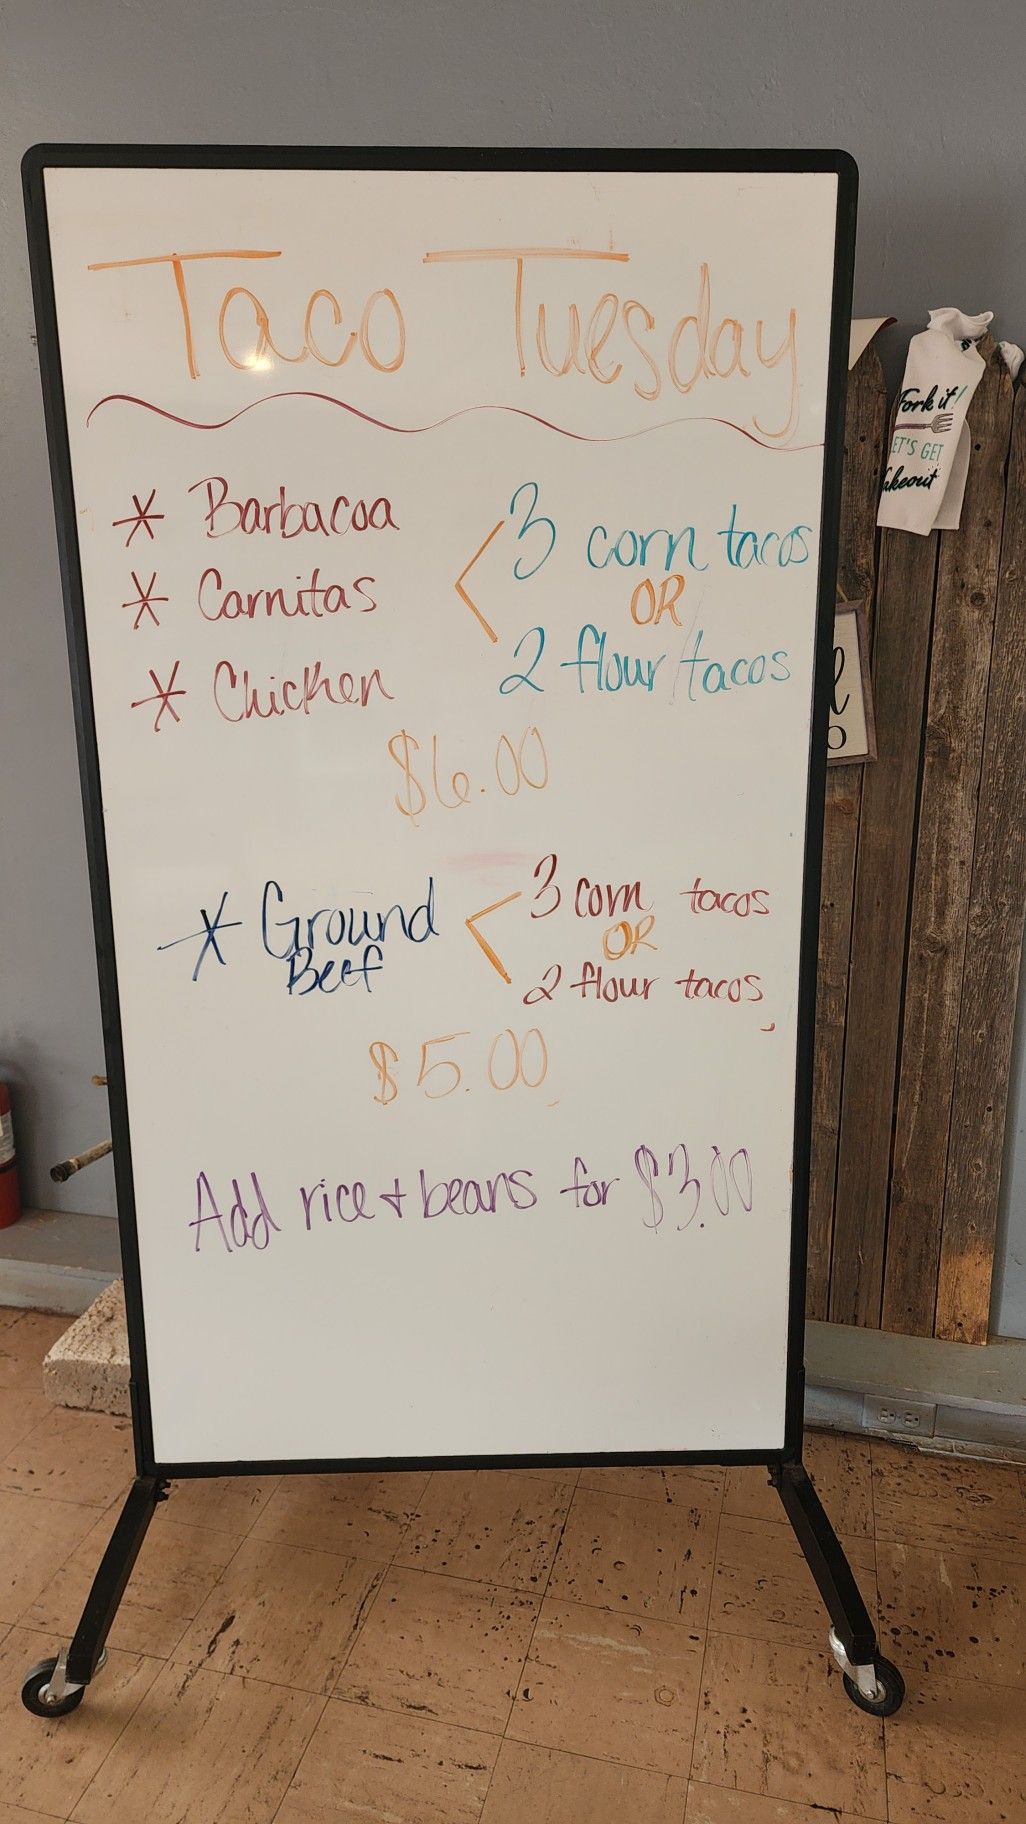 Taco Tuesday
* Barbacoa
* Carnitas
* Chicken
3 corn tacos
OR
2 flour tacos
$6.00
* Ground
Beef
3 corn tacos
OR
2 flour tacos
$5.00
Add rice + beans for $3.00
Fork it!
LET'S GET
takeout